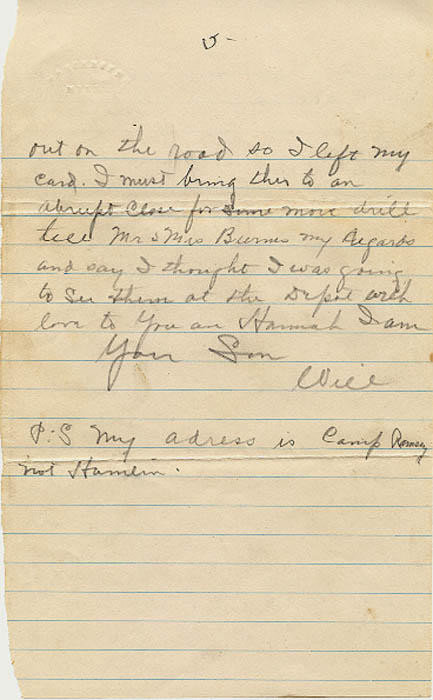 5-
out on the road so I left my
card. I must bring this to an
abrupt close for some more drill
tell Mr & Mrs Burns my regards
and say I thought I was going
to see them at the Depot with
love to You an Hannah I am
Your Son
Will
P.S My adress is Camp Ramsey
not Hamlin.